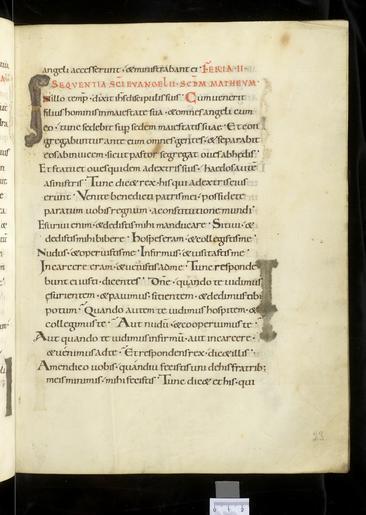 angeli accesserunt · & ministrabant ei · FERIA · II ·
SEQUENTIA SCI EVANGELII · SCDM MATHEVM ·
In illo temp̄ · dixit ihs discipulis suis · Cum venerit
filius hominis in maiestate sua · & omnes angeli cum
eo · tunc sedebit sup sedem maiestatis suae · Et con
gregabuntur ante eum omnes gentes · & separabit
eos ab invicem · sicut pastor segregat oves ab hędis ·
Et statuet oves quidem a dextris suis · haedos autē
a sinistris · Tunc dic& rex · his qui a dextris eius
erunt · Venite benedicti patris mei · possidete
paratum vobis regnum · a constitutione mundi ·
Esurivi enim · & dedistis mihi manducare · Sitivi · &
dedistis mihi bibere · Hospes eram · & collegistis me ·
Nudus · & operuistis me · Infirmus · & visitastis me ·
In carcere eram · & venistis ad me · Tunc responde
bunt ei iusti · dicentes · Dn̄e · quando te vidimus
esurientem · & pavimus · sitientem · & dedimus tibi
potum · Quando autem te vidimus hospitem · &
collegimus te · Aut nudū · & cooperuimus te ·
Aut quando te vidimus infirmū · aut in carcere ·
& venimus ad te · Et respondens rex · dic& illis ·
Amen dico vobis · quandiu fecistis uni de his fratrib;
meis minimis · mihi fecistis · Tunc dic& et his · qui
23